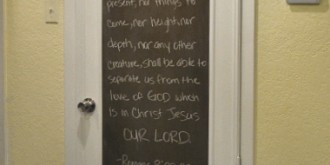 present, nor things to
come, nor height, nor
depth, nor any other
creature, shall be able to
separate us from the
love of GOD which
is in Christ Jesus
OUR LORD.